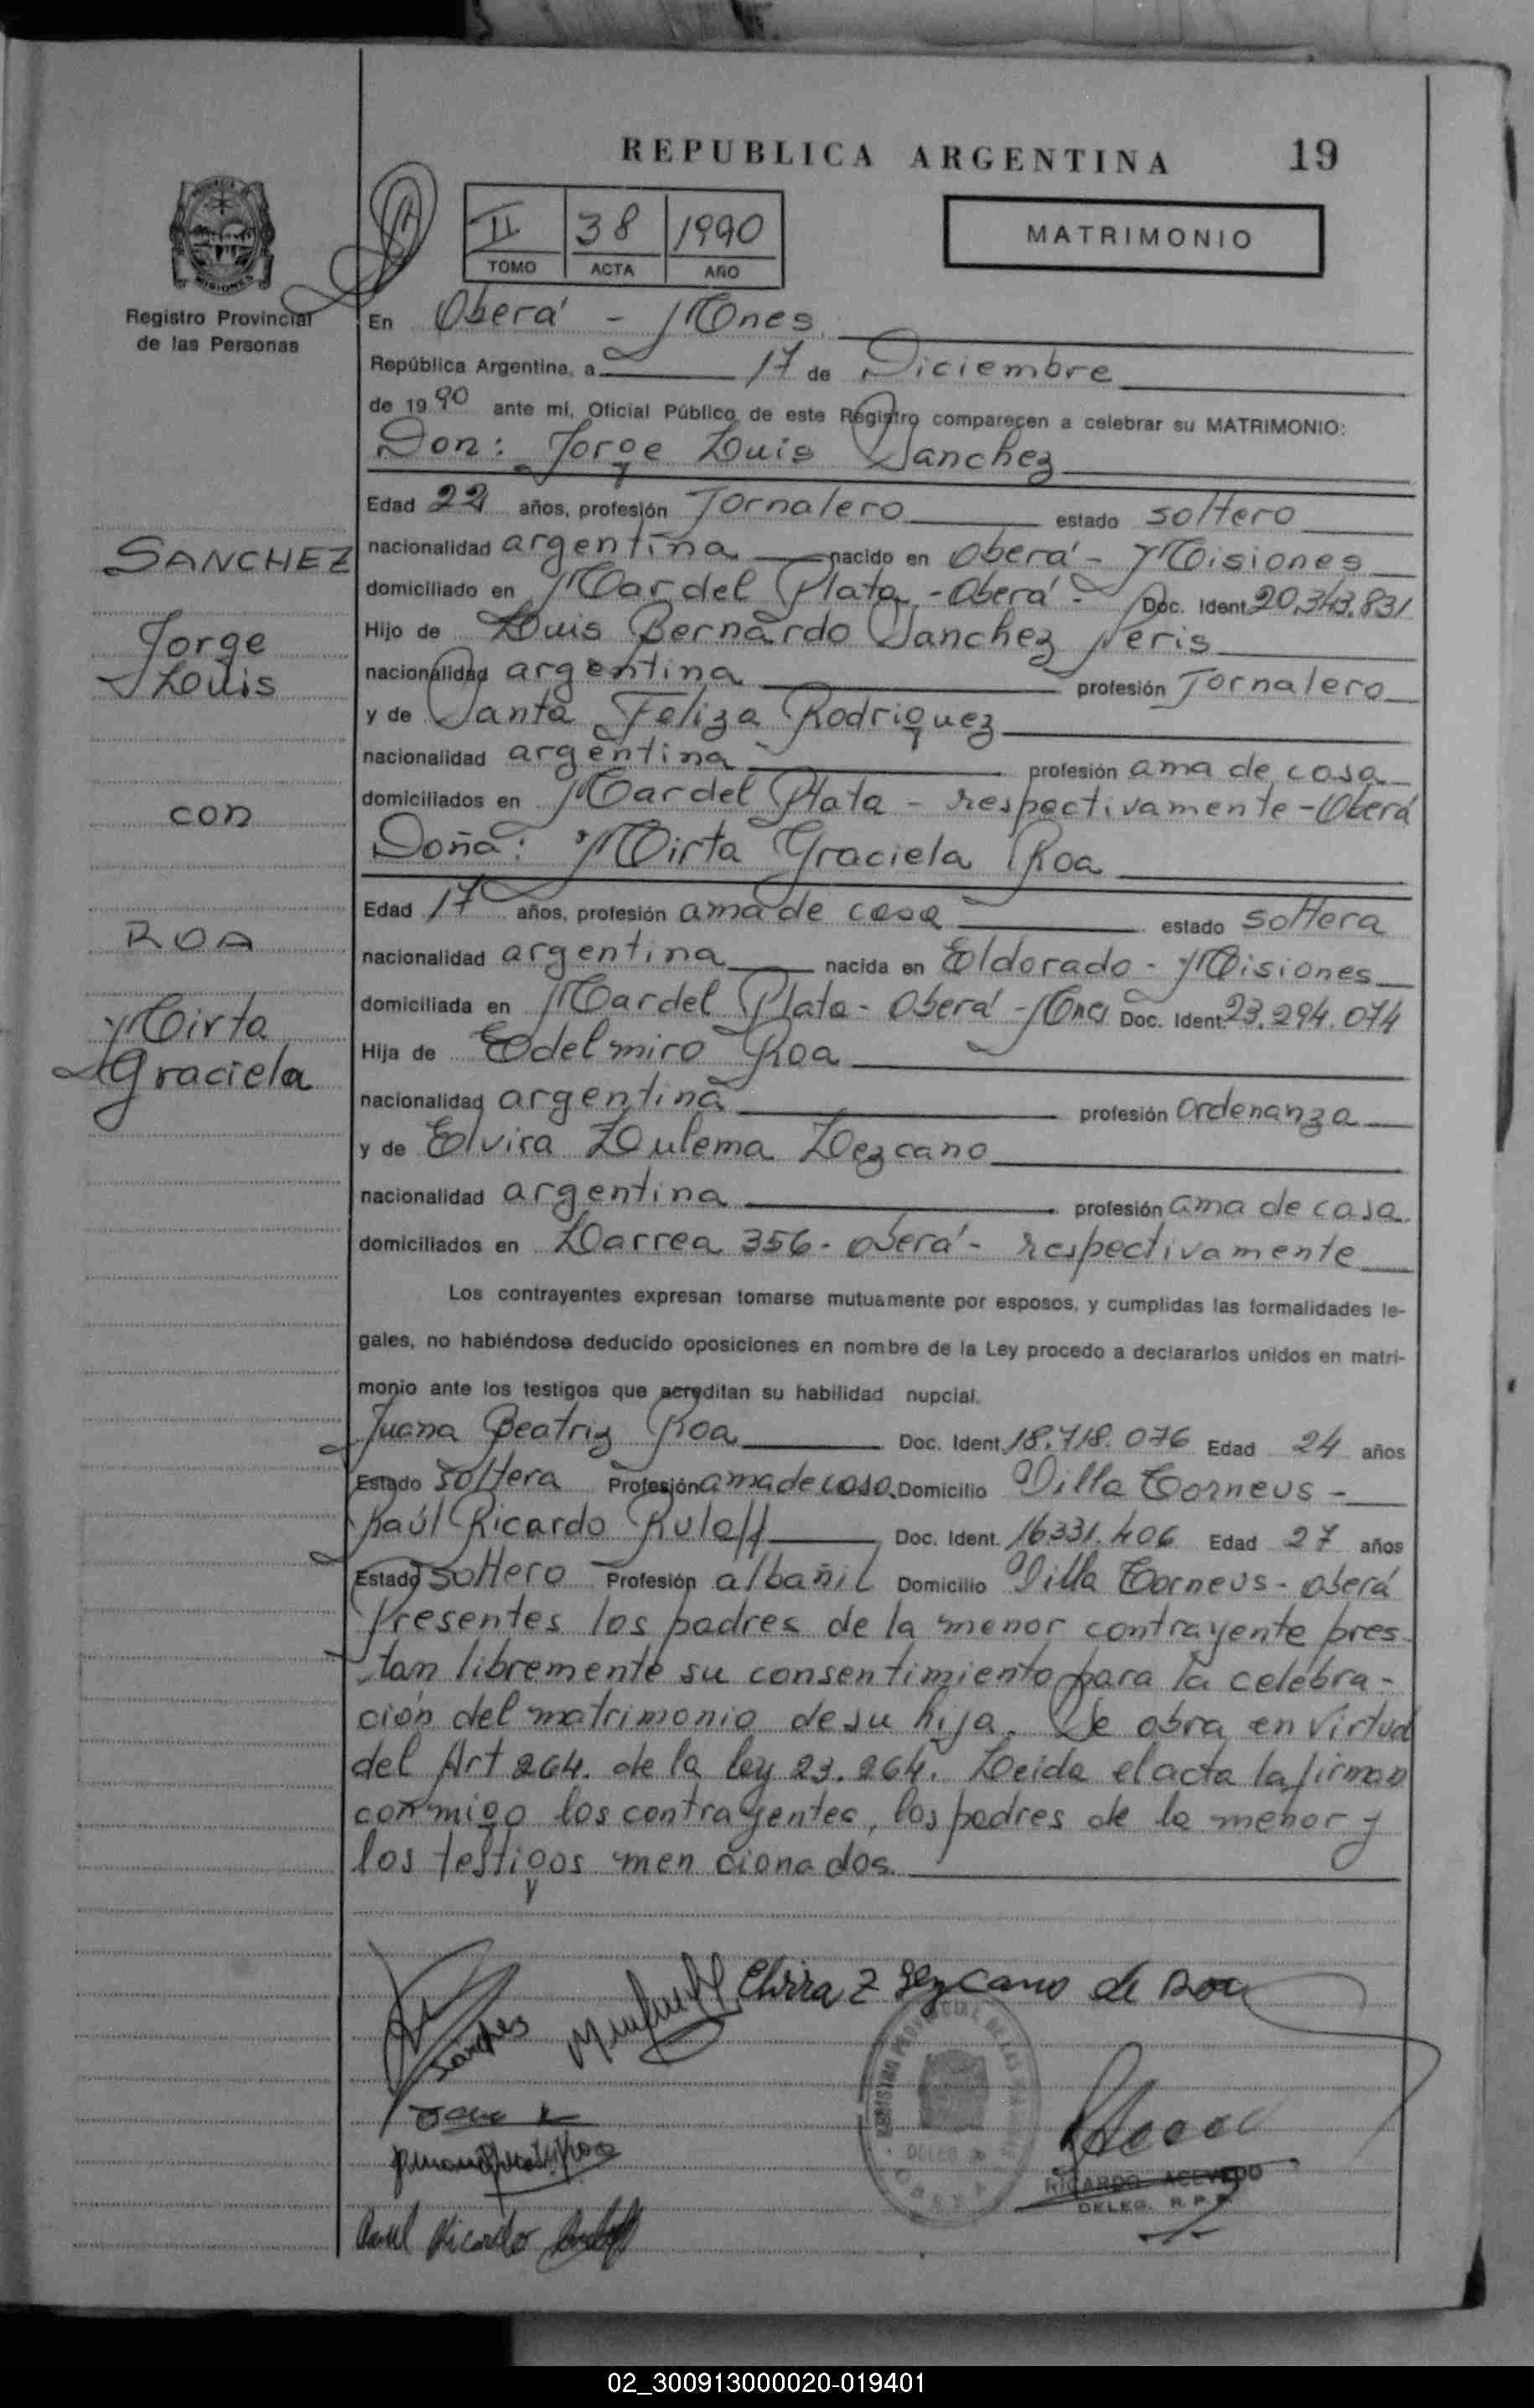 REPUBLICA ARGENTINA 19
II 38 1990
TOMO ACTA AÑO
MATRIMONIO
MISIONES
Registro Provincial
de las Personas
En Oberá - Mnes.
República Argentina, a 17 de Diciembre
de 1990 ante mi, Oficial Público de este Registro comparecen a celebrar su MATRIMONIO:
Don: Jorge Luis Sanchez
Edad 22 años, profesión Jornalero estado soltero
nacionalidad argentina nacido en Oberá - Misiones
domiciliado en Mar del Plata - Oberá - Doc. Ident. 20.343.831
Hijo de Luis Bernardo Sanchez Neris
nacionalidad argentina profesión Jornalero
y de Santa Feliza Rodriguez
nacionalidad argentina profesión ama de casa
domiciliados en Mar del Plata - respectivamente - Oberá
Doña: Mirta Graciela Roa
Edad 17 años, profesión ama de casa estado soltera
nacionalidad argentina nacida en Eldorado - Misiones
domiciliada en Mar del Plata - Oberá - Mnes Doc. Ident. 23.294.074
Hija de Edelmiro Roa
nacionalidad argentina profesión Ordenanza
y de Elvira Zulema Lezcano
nacionalidad argentina profesión ama de casa
domiciliados en Larrea 356 - Oberá - respectivamente
Los contrayentes expresan tomarse mutuamente por esposos, y cumplidas las formalidades le-
gales, no habiéndose deducido oposiciones en nombre de la Ley procedo a declararlos unidos en matri-
monio ante los testigos que acreditan su habilidad nupcial.
Juana Beatriz Roa Doc. Ident. 18.718.076 Edad 24 años
Estado soltera Profesión ama de casa Domicilio Villa Torneus -
Raúl Ricardo Ruloff Doc. Ident. 16331.406 Edad 27 años
Estado soltero Profesión albañil Domicilio Villa Torneus - Oberá
Presentes los padres de la menor contrayente pres
tan libremente su consentimiento para la celebra-
ción del matrimonio de su hija. Se obra en virtud
del Art 264. de la ley 23.264. Leida el acta la firman
conmigo los contrayentes, los padres de la menor y
los testigos mencionados.
SANCHEZ
Jorge
Luis
con
ROA
Mirta
Graciela
Sanches
Elvira Z Lezcano de Roa
Raul Ricardo
RICARDO ACEVEDO
DELEG. R. P. P.
02_300913000020-019401